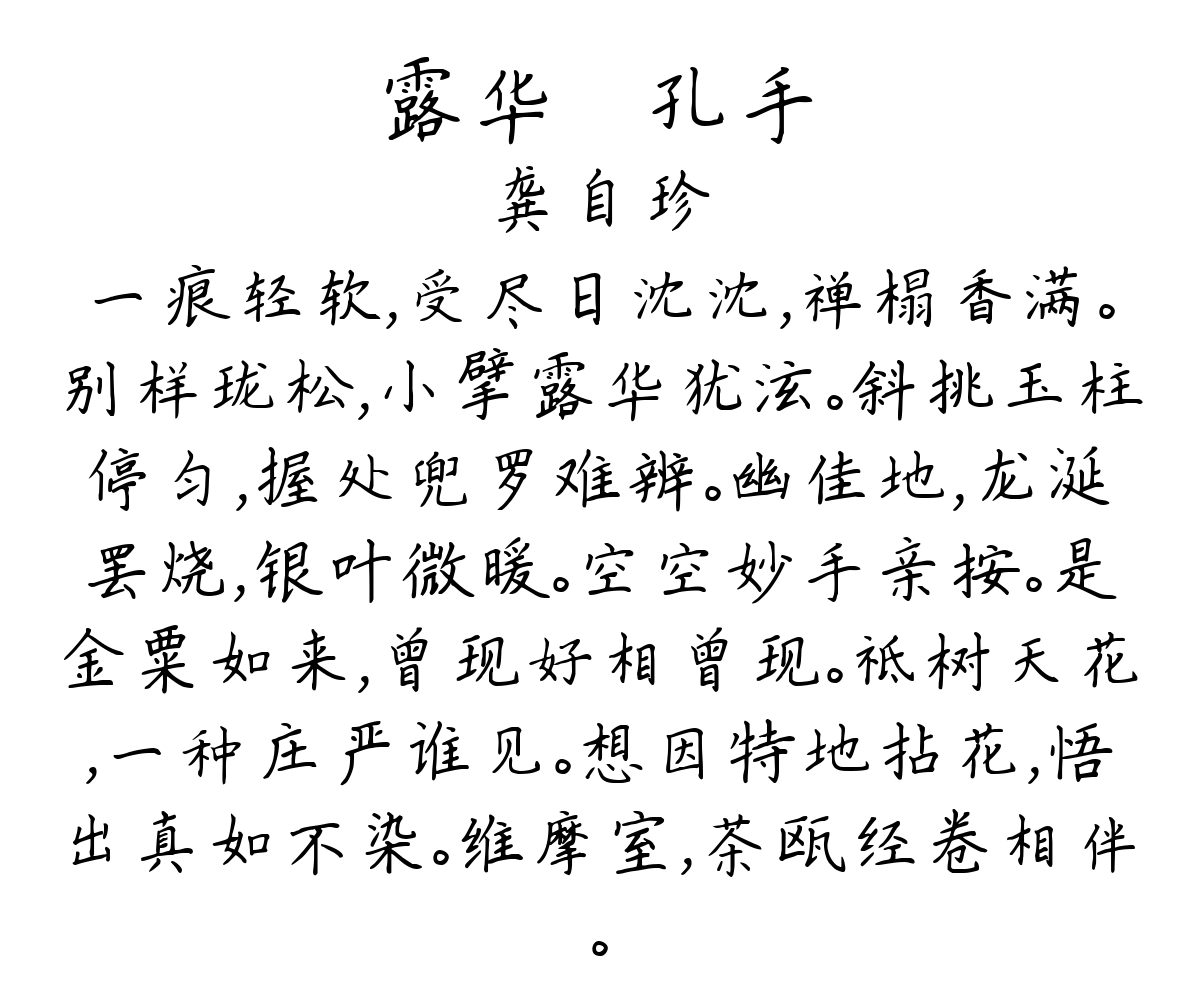 露华　孔手
龚自珍
一痕轻软,受尽日沈沈,禅榻香满。
别样珑松,小擘露华犹泫。斜挑玉柱
停匀,握处兜罗难辨。幽佳地,龙涎
罢烧,银叶微暖。空空妙手亲按。是
金粟如来,曾现好相曾现。祗树天花
,一种庄严谁见。想因特地拈花,悟
出真如不染。维摩室,茶瓯经卷相伴
。